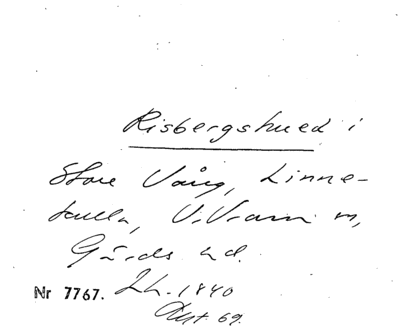 Risbergshued i
Store Vång, Linne-
kulla, V. Vram sn,
Gärds hd.
Nr 7767. Lh. 1840
Akt. 69.